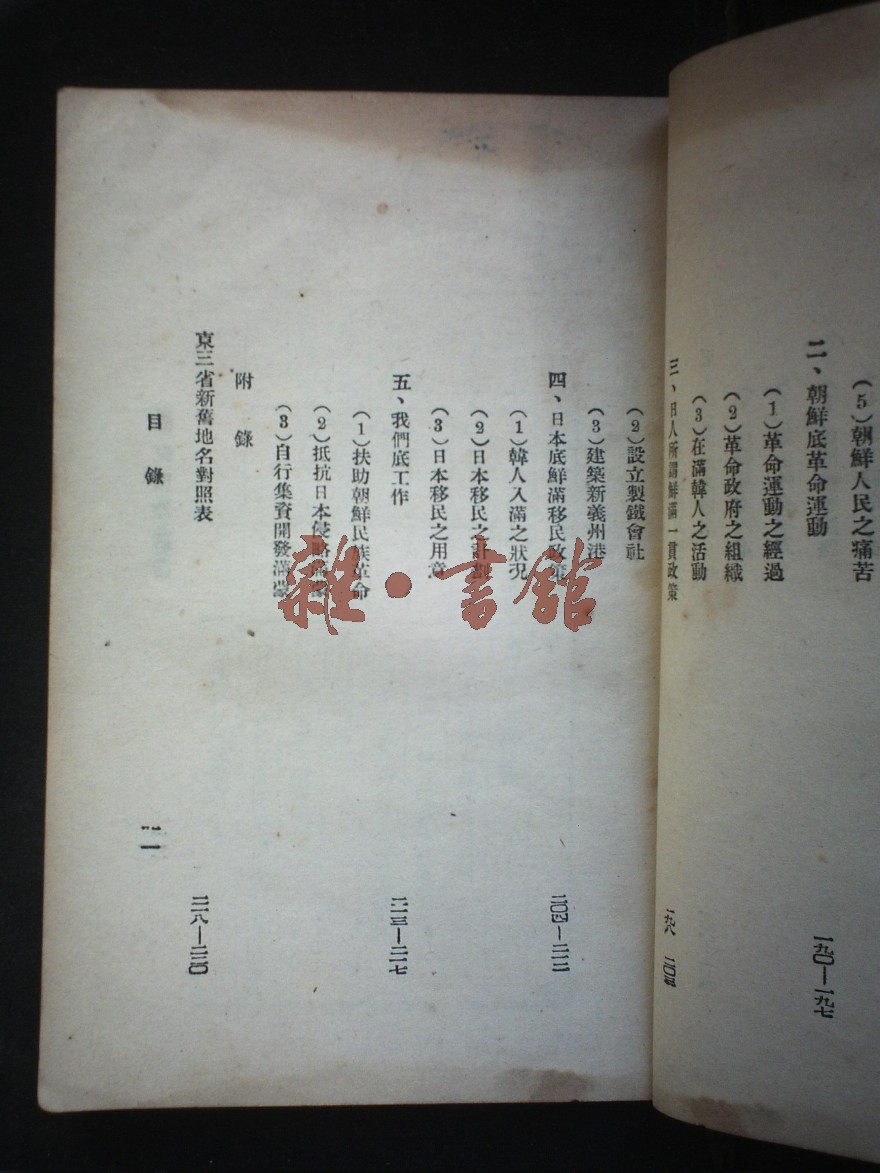 (5)朝鮮人民之痛苦
二、朝鮮底革命運動
一九〇—一九七
(1)革命運動之經過
(2)革命政府之組織
(3)在滿韓人之活動
三、日人所謂鮮滿一貫政策
一九八 二〇三
(2)設立製鐵會社
(3)建築新義州港
四、日本底鮮滿移民政策
二〇四—二一二
(1)韓人入滿之狀况
(2)日本移民之計劃
(3)日本移民之用意
五、我們底工作
二一三—二一七
(1)扶助朝鮮民族革命
(2)抵抗日本侵略滿蒙
(3)自行集資開發滿蒙
附錄
東三省新舊地名對照表
二一八—二二〇
目錄
一一
雜·書館